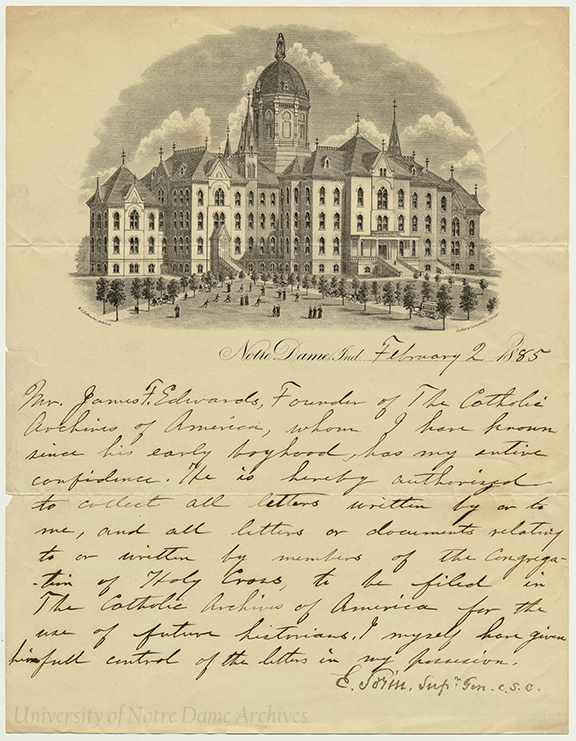 Notre Dame, Ind. February 2 1885
Mr. James F. Edwards, Founder of The Catholic
Archives of America, whom I have known
since his early boyhood, has my entire
confidence. He is hereby authorized
to collect all letters written by or to
me, and all letters or documents relating
to or written by members of the Congrega-
-tion of Holy Cross, to be filed in
The Catholic Archives of America for the
use of future historians. I myself have given
him full control of the letters in my possession.
E. Sorin, Supr. Gen. c.s.c.
University of Notre Dame Archives